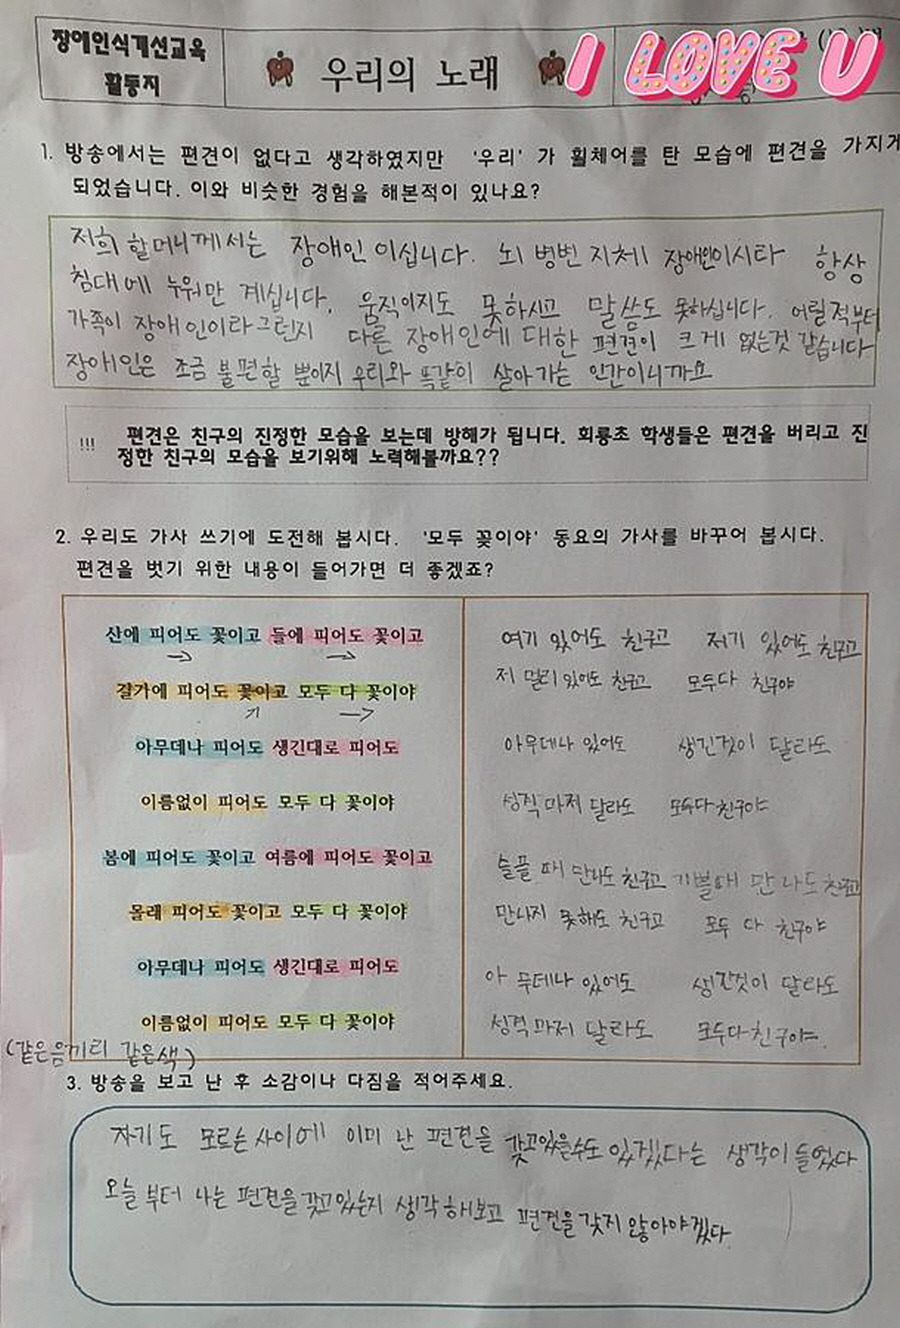 장애인식개선교육
활동지
우리의 노래
I LOVE U
1. 방송에서는 편견이 없다고 생각하였지만 '우리' 가 휠체어를 탄 모습에 편견을 가지게
되었습니다. 이와 비슷한 경험을 해본적이 있나요?
저희 할머니께서는 장애인 이십니다. 뇌 병변 지체 장애인이시타 항상
침대에 누워만 계십니다. 움직이지도 못하시고 말씀도 못하십니다. 어릴적부터
가족이 장애인이라그런지 다른 장애인에 대한 편견이 크게 없는것 같습니다
장애인은 조금 불편할 뿐이지 우리와 똑같이 살아가는 인간이니까요
!!! 편견은 친구의 진정한 모습을 보는데 방해가 됩니다. 회룡초 학생들은 편견을 버리고 진
정한 친구의 모습을 보기위해 노력해볼까요??
2. 우리도 가사 쓰기에 도전해 봅시다. '모두 꽃이야' 동요의 가사를 바꾸어 봅시다.
편견을 벗기 위한 내용이 들어가면 더 좋겠죠?
산에 피어도 꽃이고 들에 피어도 꽃이고
길가에 피어도 꽃이고 모두 다 꽃이야
아무데나 피어도 생긴대로 피어도
이름없이 피어도 모두 다 꽃이야
봄에 피어도 꽃이고 여름에 피어도 꽃이고
몰래 피어도 꽃이고 모두 다 꽃이야
아무데나 피어도 생긴대로 피어도
이름없이 피어도 모두 다 꽃이야
(같은음끼리 같은색)
여기 있어도 친구고 저기 있어도 친구고
저 멀리 있어도 친구고 모두다 친구야
아무데나 있어도 생긴것이 달라도
성격마저 달라도 모두다 친구야
슬플 때 만나도 친구고 기쁠때 만나도 친구고
만나지 못해도 친구고 모두 다 친구야
아무데나 있어도 생긴것이 달라도
성격마저 달라도 모두다 친구야.
3. 방송을 보고 난 후 소감이나 다짐을 적어주세요.
자기도 모르는 사이에 이미 난 편견을 갖고있을수도 있겠다는 생각이 들었다
오늘 부터 나는 편견을 갖고있는지 생각해보고 편견을 갖지 않아야겠다.